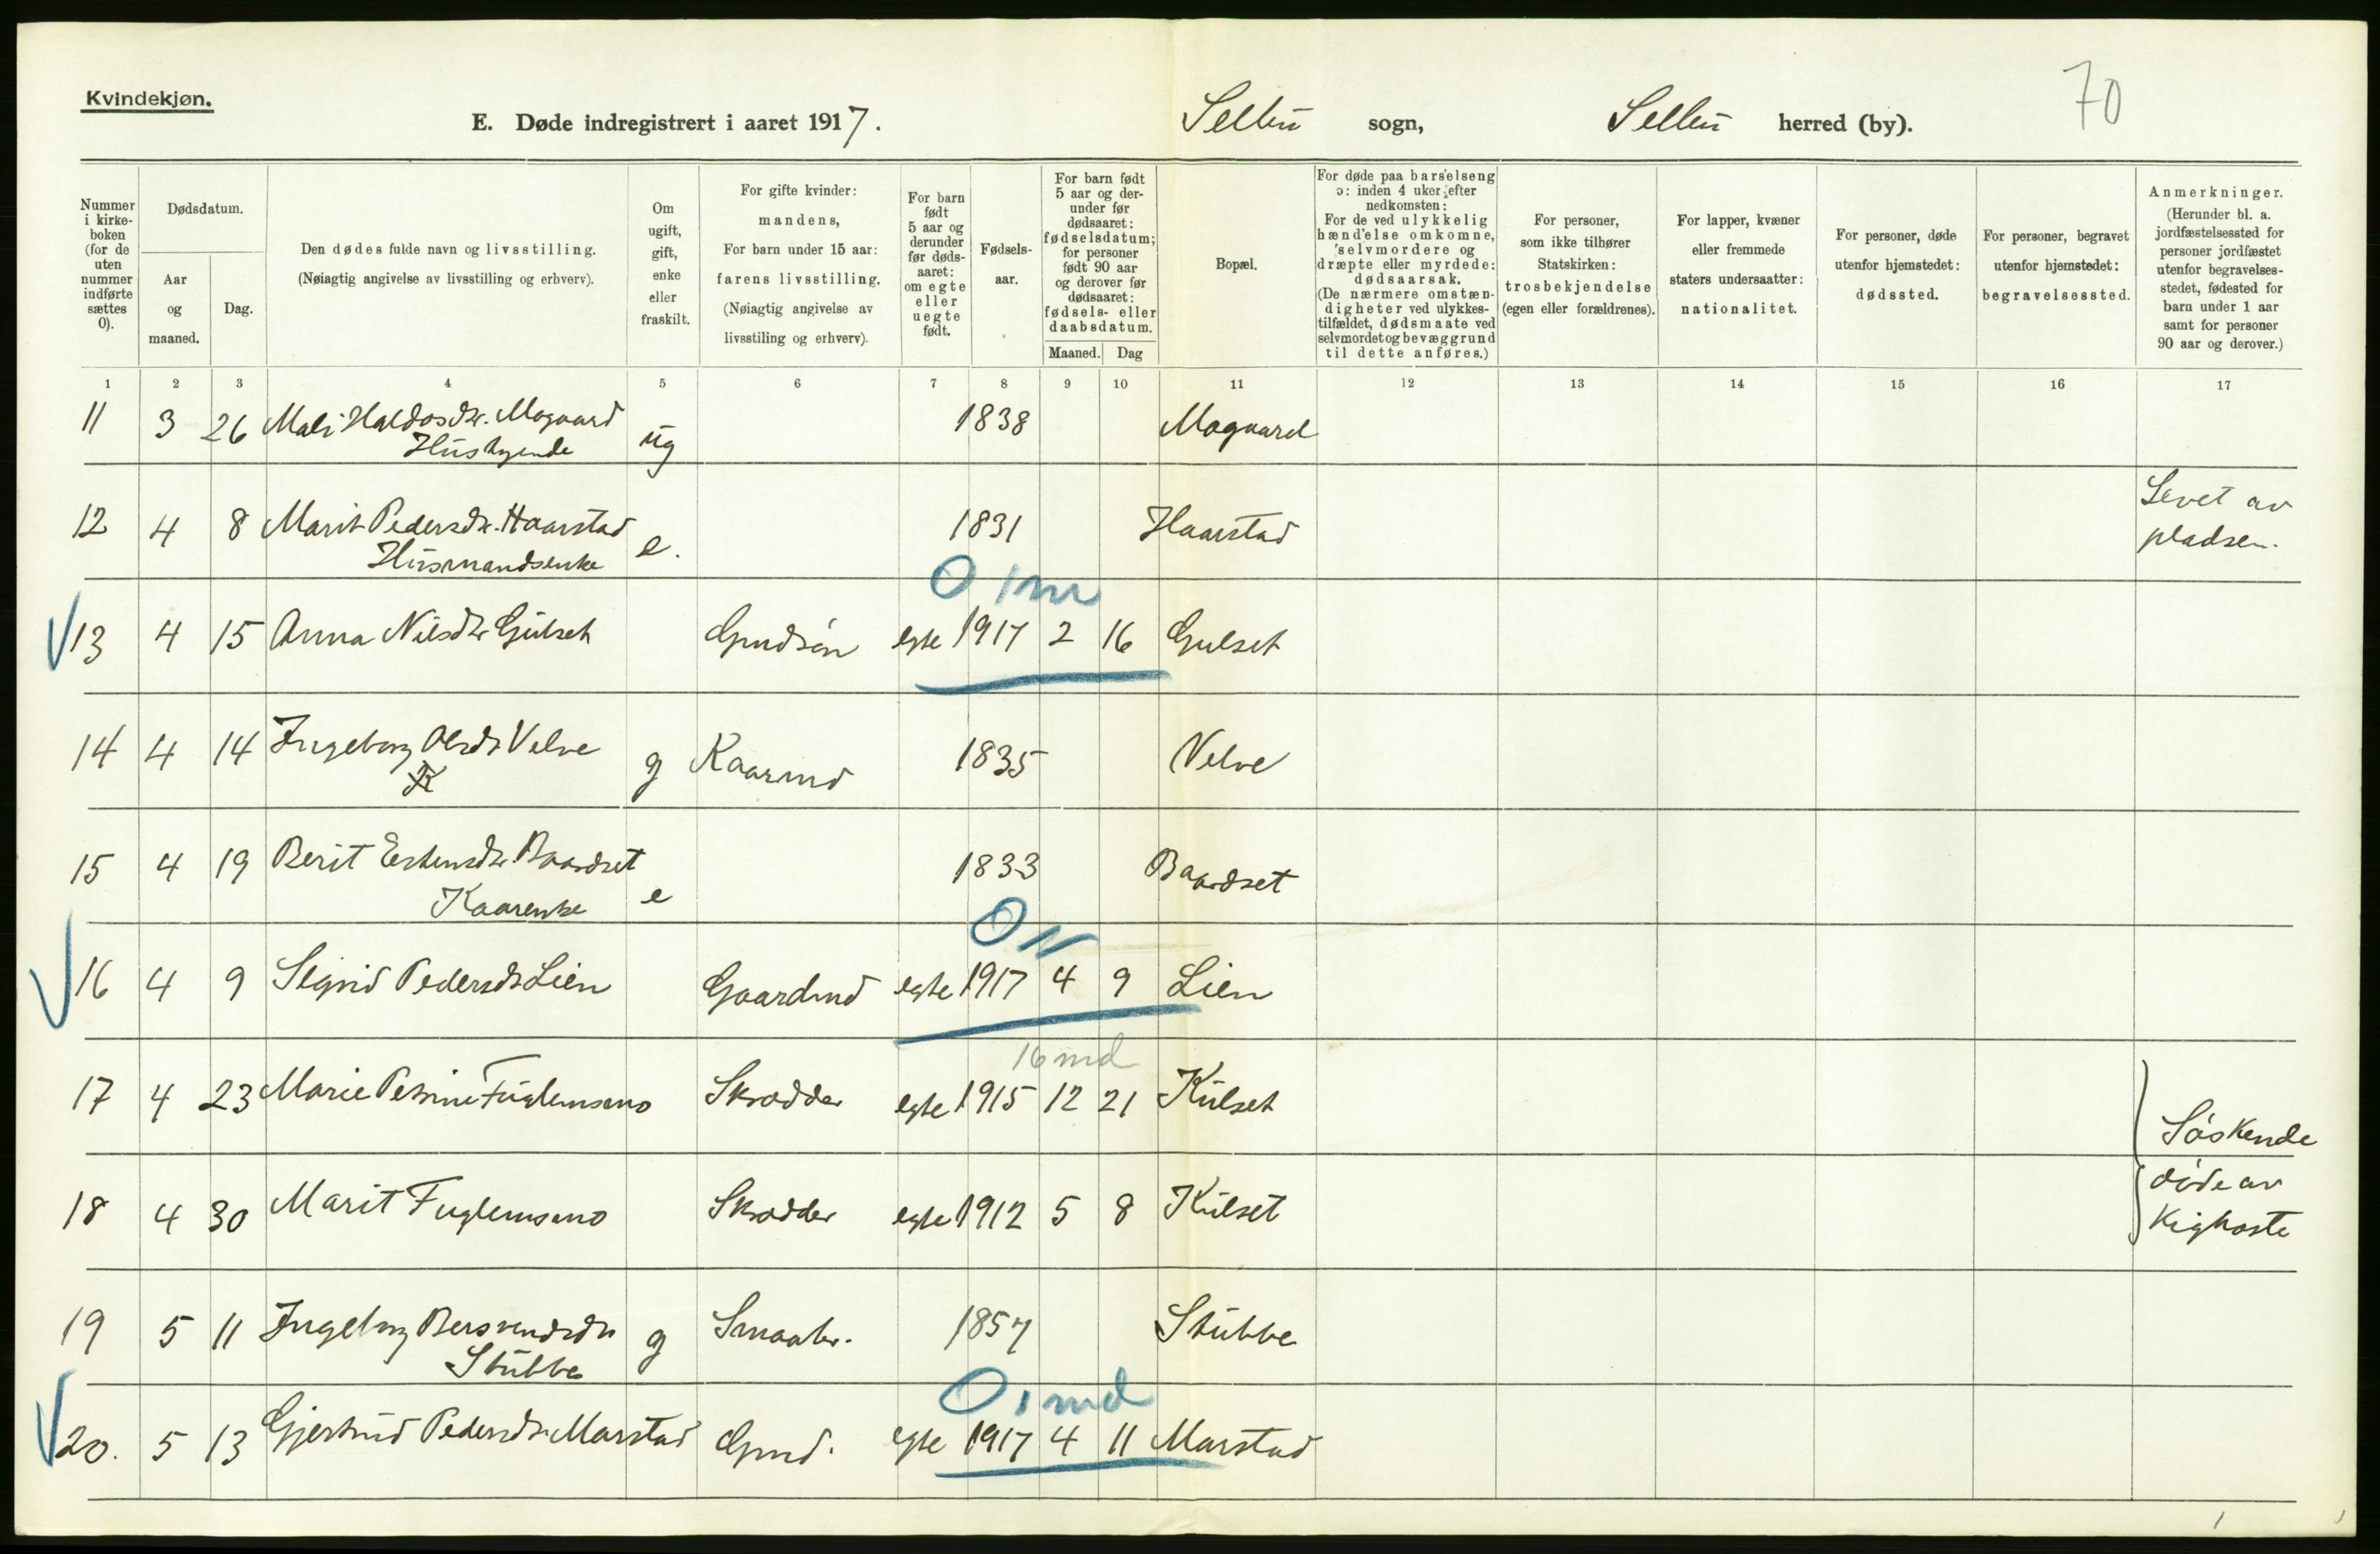 Kvindekjøn.
E. Døde indregistrert i aaret 1917.
Selbu sogn,
Selbu herred (by).
70
Nummer i kirke-boken (for de uten nummer indførte sættes 0).
Dødsdatum.
Aar og maaned.
Dag.
Den dødes fulde navn og livsstilling.
(Nøiagtig angivelse av livsstilling og erhverv).
Om ugift, gift, enke eller fraskilt.
For gifte kvinder: mandens,
For barn under 15 aar: farens livsstilling.
(Nøiagtig angivelse av livsstiling og erhverv).
For barn født 5 aar og derunder før døds-aaret: om egte eller uegte født.
Fødsels-aar.
For barn født 5 aar og der-under før dødsaaret: fødselsdatum; for personer født 90 aar og derover før dødsaaret: fødsels- eller daabsdatum.
Maaned. Dag
Bopæl.
For døde paa barselseng ɔ: inden 4 uker efter nedkomsten:
For de ved ulykkelig hændelse omkomne, selvmordere og dræpte eller myrdede: dødsaarsak.
(De nærmere omstæn-digheter ved ulykkes-tilfældet, dødsmaate ved selvmordet og bevæggrund til dette anføres.)
For personer, som ikke tilhører Statskirken: trosbekjendelse (egen eller forældrenes).
For lapper, kvæner eller fremmede staters undersaatter: nationalitet.
For personer, døde utenfor hjemstedet: dødssted.
For personer, begravet utenfor hjemstedet: begravelsessted.
Anmerkninger.
(Herunder bl. a. jordfæstelsessted for personer jordfæstet utenfor begravelses-stedet, fødested for barn under 1 aar samt for personer 90 aar og derover.)
1 2 3 4 5 6 7 8 9 10 11 12 13 14 15 16 17
11 3 26 Mali Haldosdr. Mogaard ug 1838 Mogaard
Husbyende
12 4 8 Marit Pedersdr. Haarstad e. 1831 Haarstad Levet av
Husmandsenke pladsen.
0 1 m
13 4 15 Anna Nilsdr Gulset Gmdsøn egte 1917 2 16 Gulset
14 4 14 Ingeborg Olsdr Velve g Kaarmd 1835 Velve
15 4 19 Berit Estensdr Baardset e 1833 Baardset
Kaarenke
0
16 4 9 Sigrid Pedersdr Lien Gaardmd egte 1917 4 9 Lien
16 md
17 4 23 Marie Petrine Fuglemsmo Skrædder egte 1915 12 21 Kulset Søskende
18 4 30 Marit Fuglemsmo Skrædder egte 1912 5 8 Kulset døde av
Kighoste
19 5 11 Ingeborg Bersvendsdr g Smaabr. 1857 Stubbe
Stubbe
0 1 md
20. 5 13 Gjertrud Pedersdr Marstad Gmd. egte 1917 4 11 Marstad